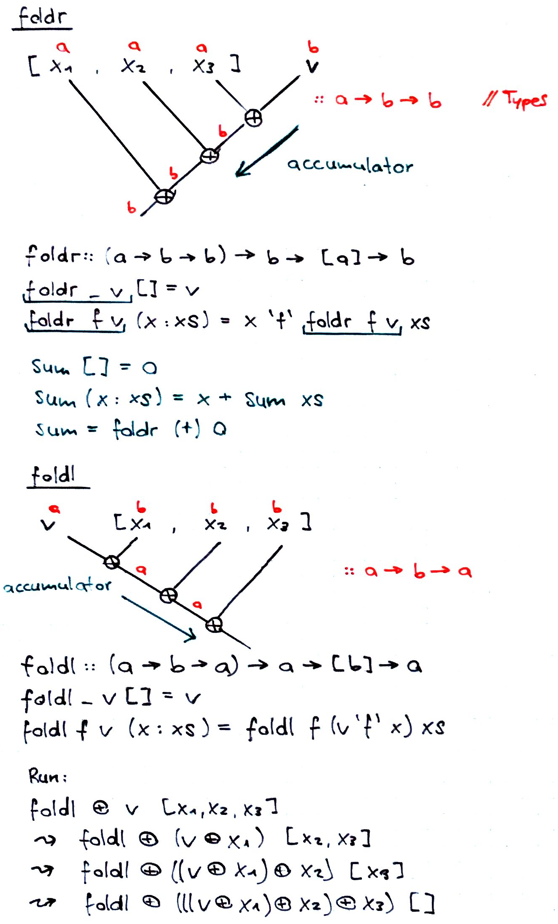 foldr
a a a b
[ x1 , x2 , x3 ] v
:: a → b → b // Types
⊕
b
⊕
accumulator
b
⊕
b
foldr :: (a → b → b) → b → [a] → b
foldr _ v [] = v
foldr f v (x : xs) = x 'f' foldr f v xs
sum [] = 0
sum (x : xs) = x + sum xs
sum = foldr (+) 0
foldl
a b b b
v [x1 , x2 , x3 ]
⊕
a
:: a → b → a
accumulator
⊕
a
⊕
foldl :: (a → b → a) → a → [b] → a
foldl _ v [] = v
foldl f v (x : xs) = foldl f (v 'f' x) xs
Run:
foldl ⊕ v [x1, x2, x3]
⇝ foldl ⊕ (v ⊕ x1) [x2, x3]
⇝ foldl ⊕ ((v ⊕ x1) ⊕ x2) [x3]
⇝ foldl ⊕ (((v ⊕ x1) ⊕ x2) ⊕ x3) []